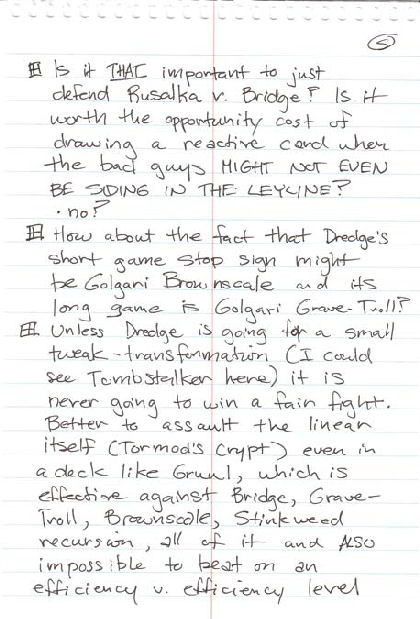 5
Is it THAT important to just
defend Rusalka v. Bridge? Is it
worth the opportunity cost of
drawing a reactive card when
the bad guys MIGHT NOT EVEN
BE SIDING IN THE LEYLINE?
· no?
How about the fact that Dredge's
short game stop sign might
be Golgari Brownscale and its
long game is Golgari Grave-Troll?
Unless Dredge is going for a small
tweak-transformation (I could
see Tombstalker here) it is
never going to win a fair fight.
Better to assault the linear
itself (Tormod's Crypt) even in
a deck like Gruul, which is
effective against Bridge, Grave-
Troll, Brownscale, Stinkweed
recursion, all of it and ALSO
impossible to beat on an
efficiency v. efficiency level